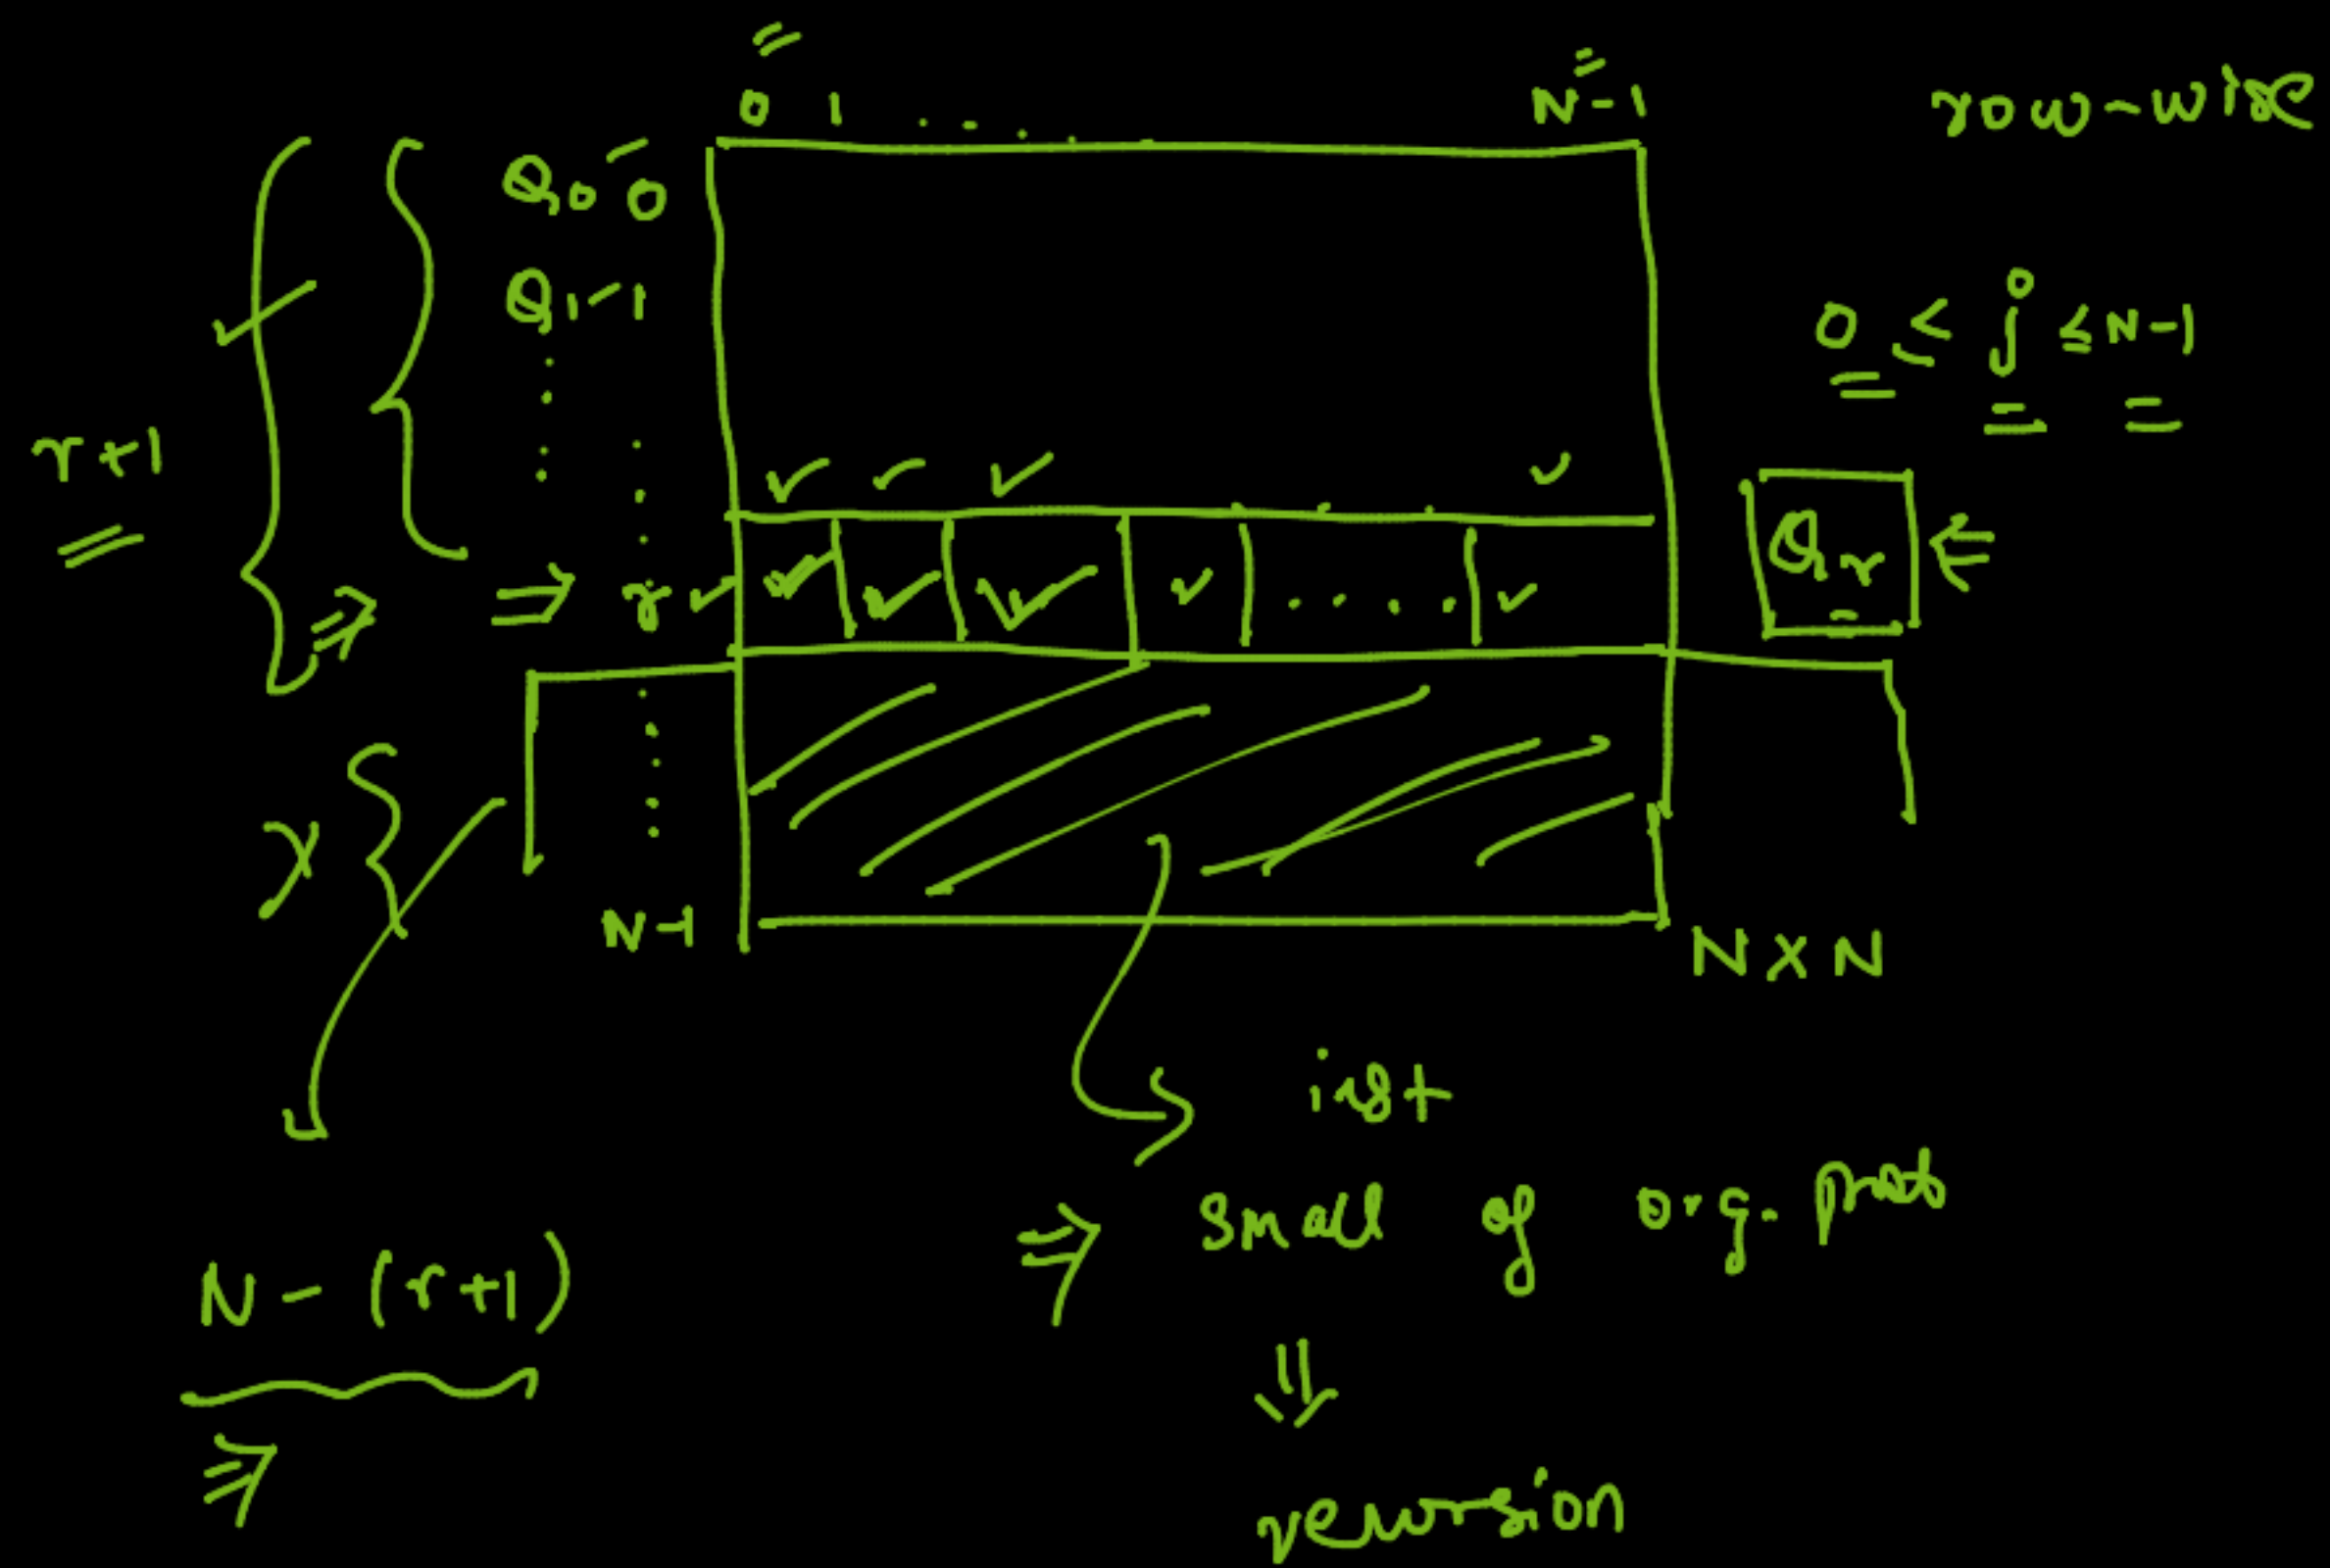 0 1 ..... N-1
row-wise
Q0 - 0
Q1 - 1
0 ≤ j ≤ N-1
r+1
⇒ r
Qr
x
N-1
N x N
inst
⇒ small of org. prob
N - (r+1)
⇓
recursion